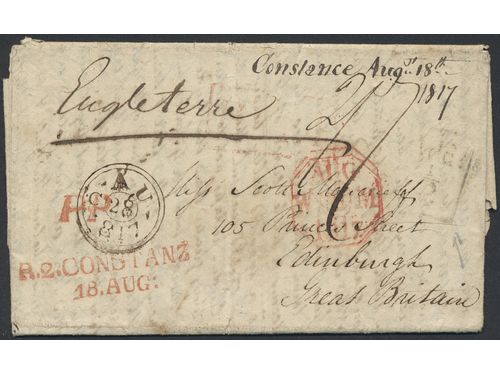 Constance Augst 18th
1817
Engleterre
AU
C 28
817
PP
AUG
1817
Miss Scott Moncrieff
105 Princes Street
Edinburgh
Great Britain
R.2.CONSTANZ
18.AUG: